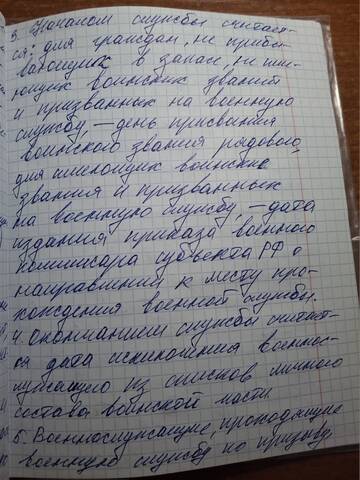 3. Началом службы считает-
ся: для граждан, не пребы-
вающих в запасе, не име-
ющих воинских званий
и призванных на военную
службу, – день присвоения
воинского звания рядового,
для имеющих воинские
звания и призванных
на военную службу – дата
издания приказа военного
комиссара субъекта РФ о
направлении к месту про-
хождения военной службы.
4. Окончанием службы считает-
ся дата исключения военнос-
лужащего из списков личного
состава воинской части
5. Военнослужащие, проходящие
военную службу по призыву,